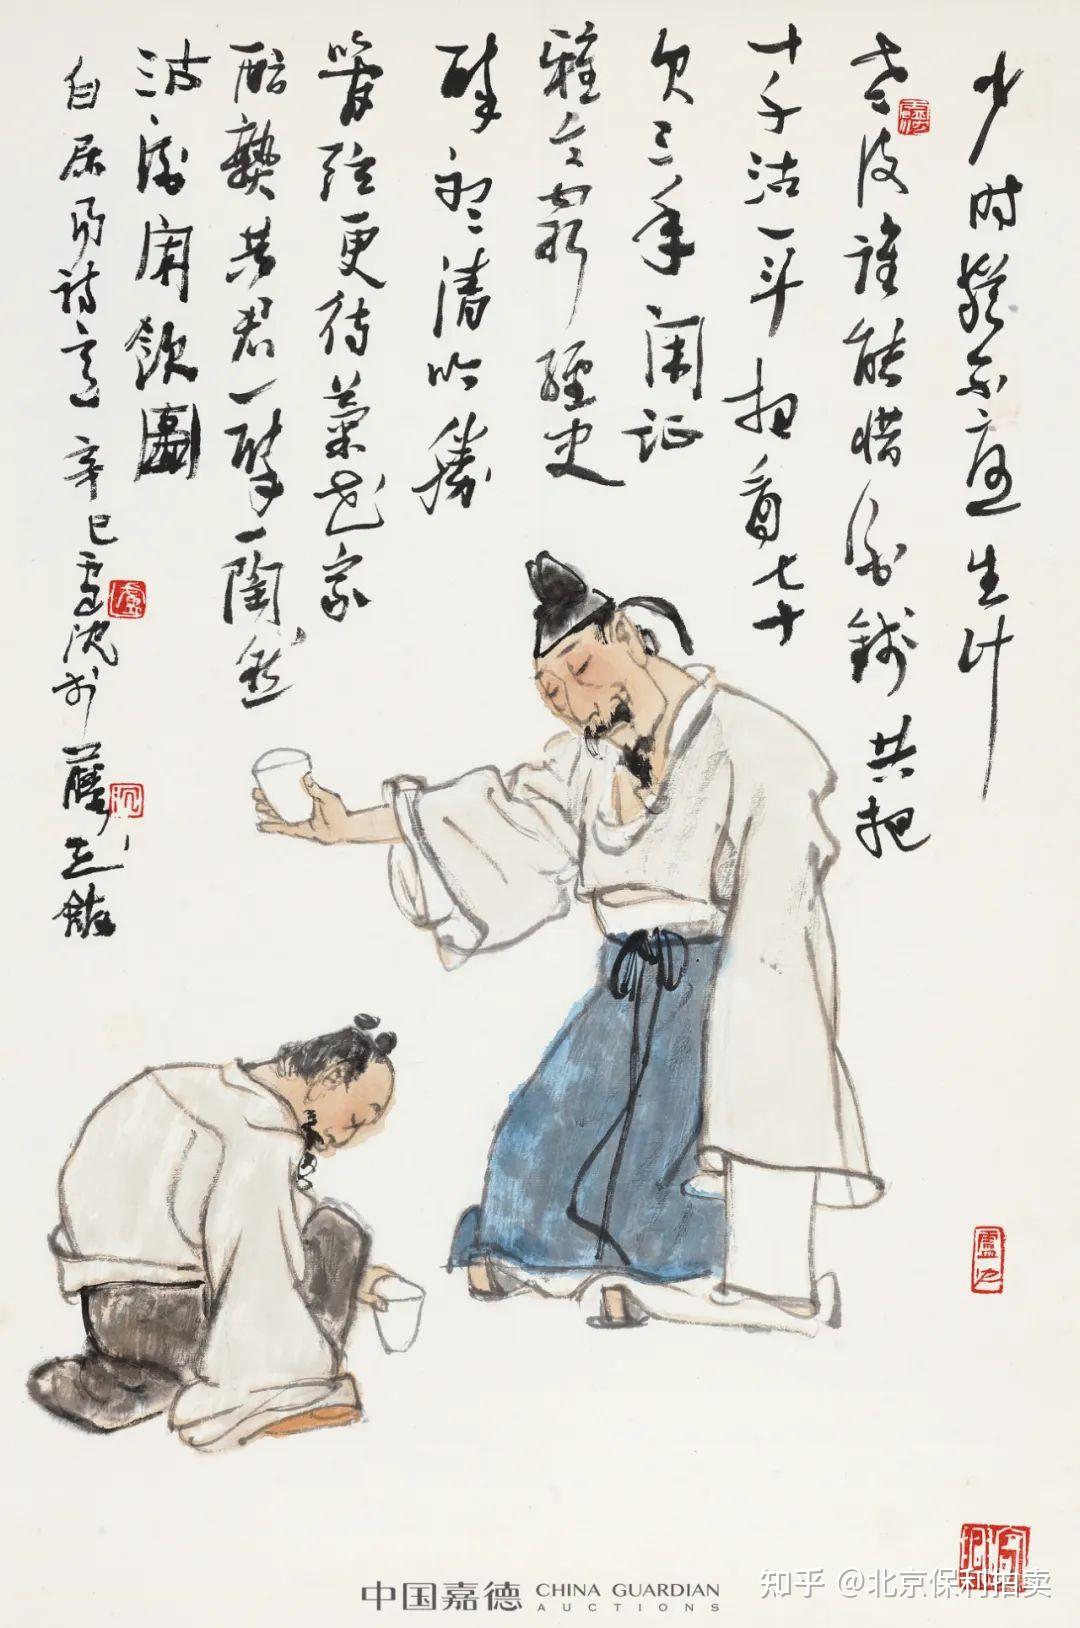 少时犹不忧生计
老後谁能惜酒钱共把
十千沽一斗相看七十
欠三年闲证
雅令穷經史
醉听清吟胜
管弦更待菊花家
醅熟共君一醉一陶然
沽酒闲飲圖
白居易诗意 辛巳 卢沉於
中国嘉德 CHINA GUARDIAN
AUCTIONS
知乎 @北京保利拍卖